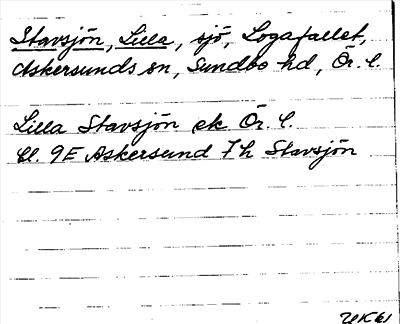 Stavsjön, Lilla, sjö, Logafallet,
Askersunds sn, Sundbo hd, Ör. l.
Lilla Stavsjön ek Ör. l.
bl. 9E Askersund 7h Stavsjön